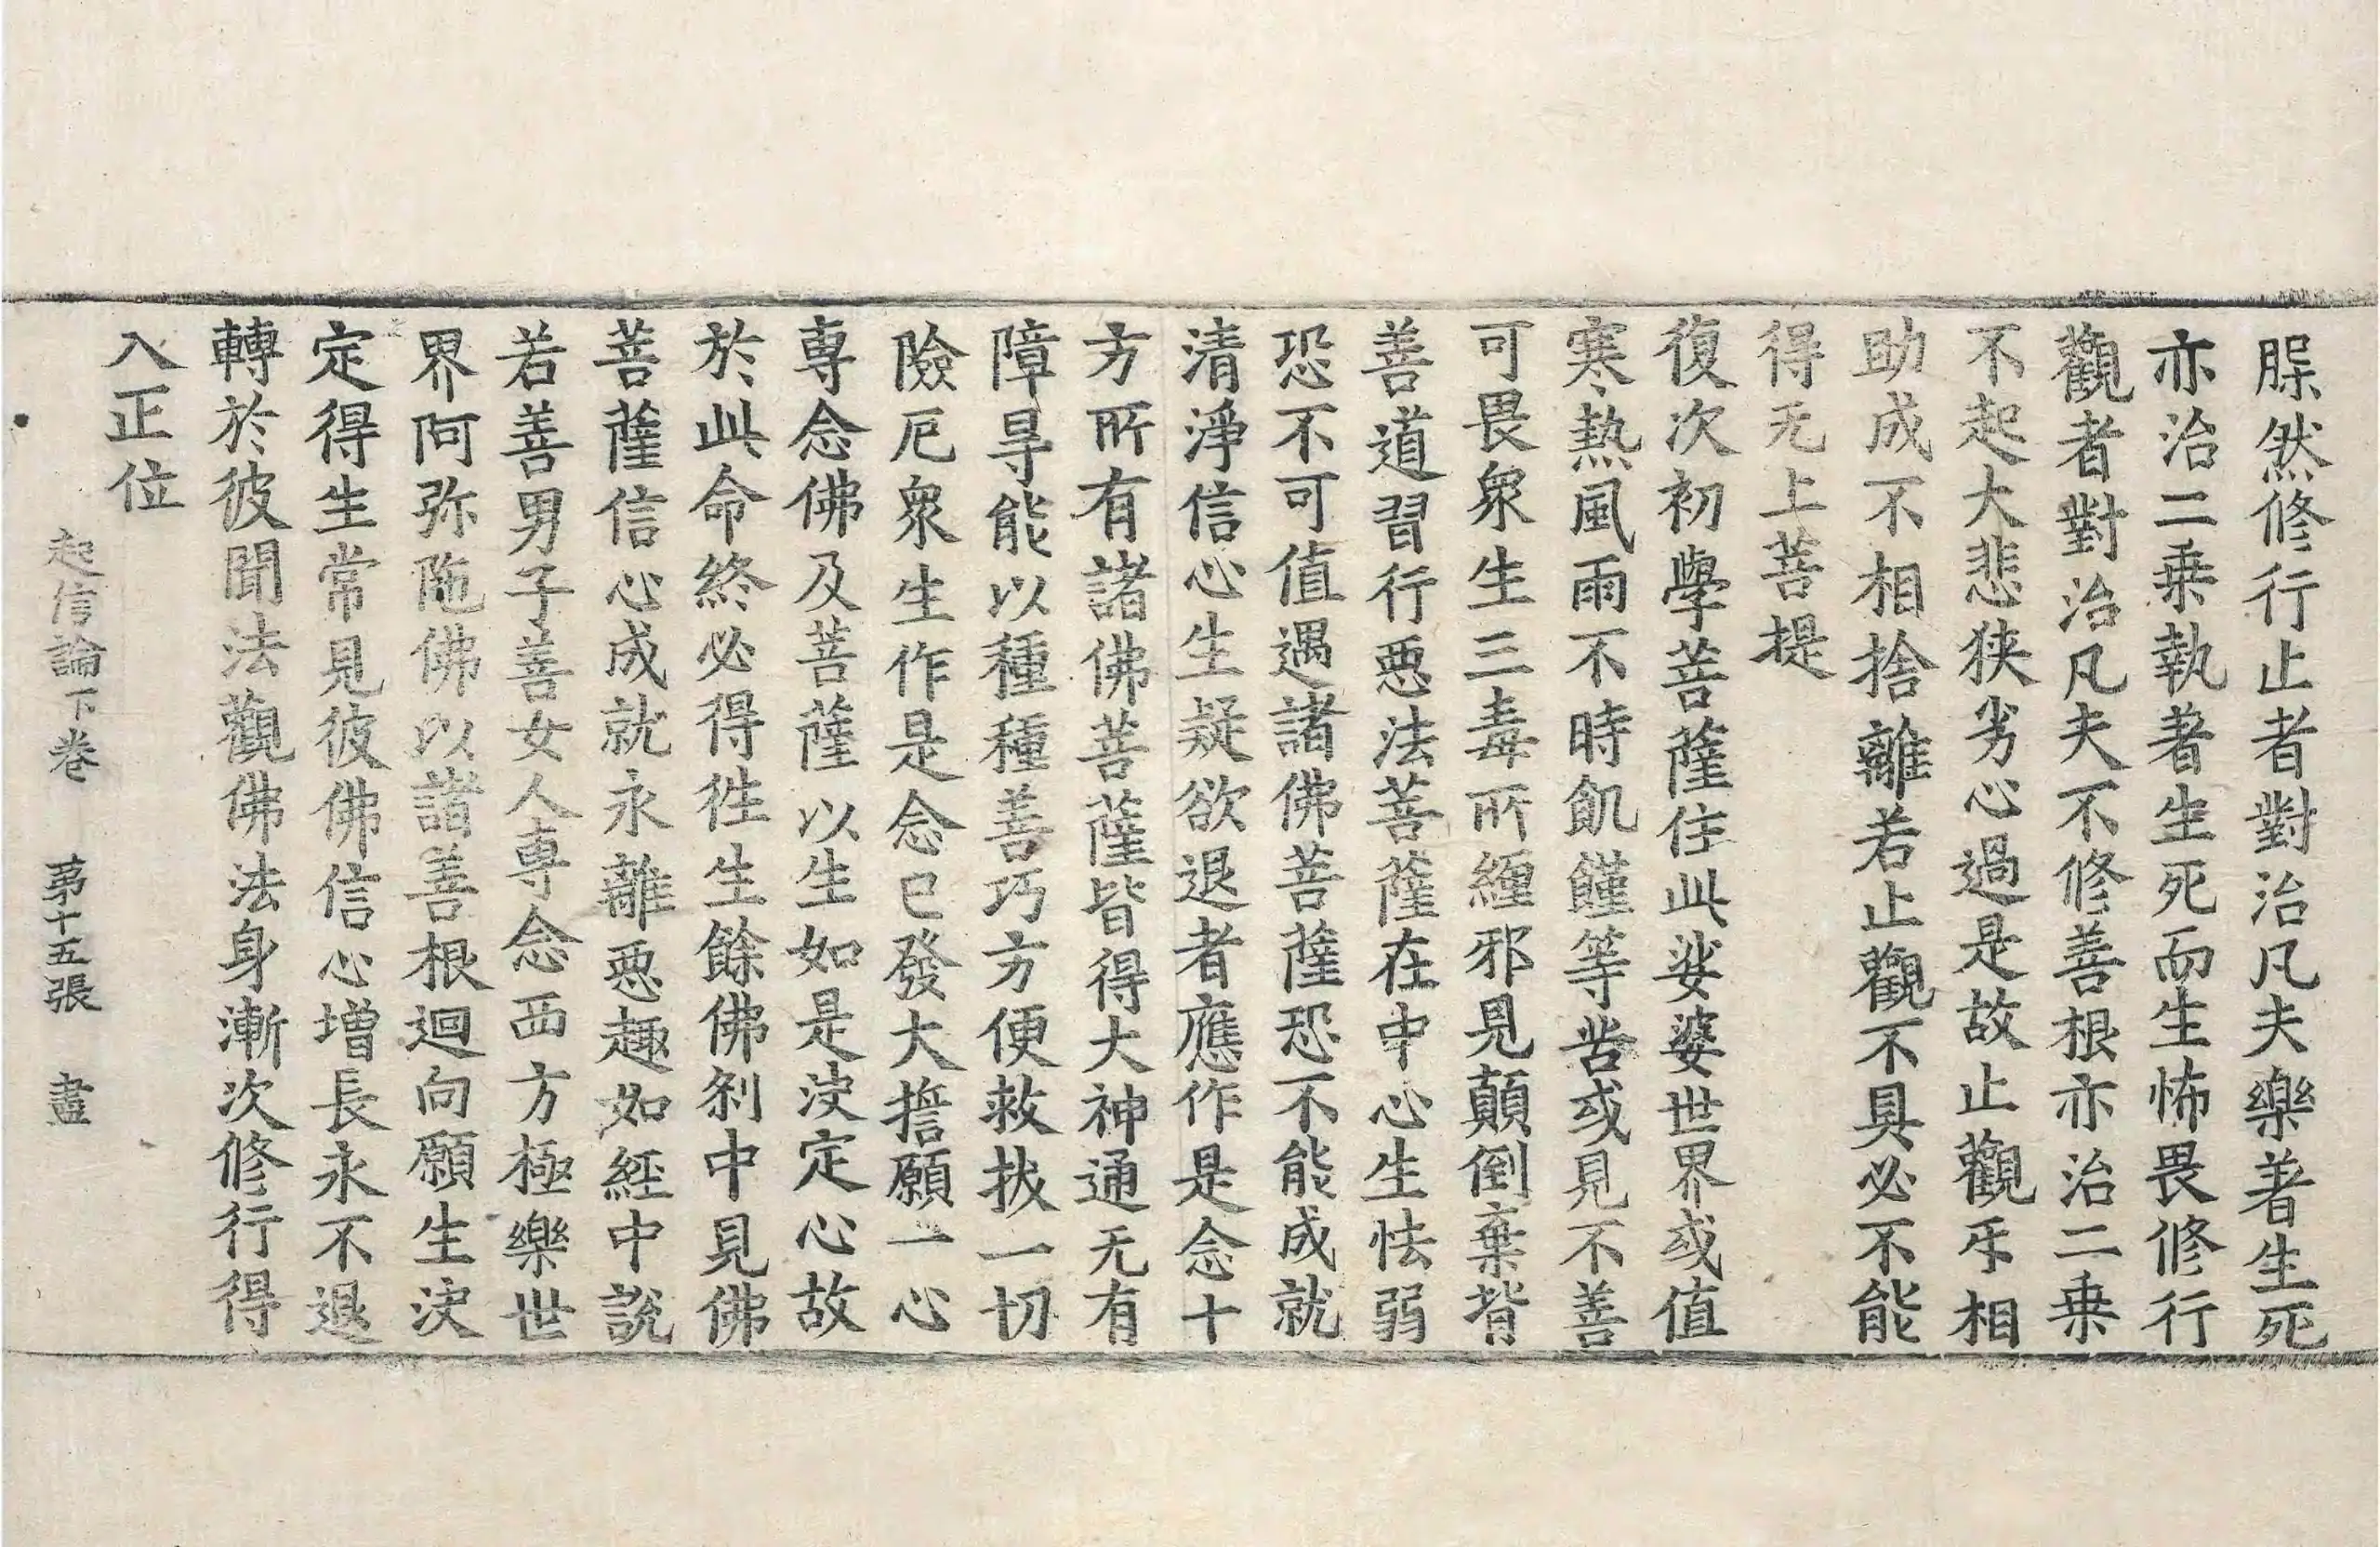 躁然修行止者對治凡夫樂著生死
亦治二乗執著生死而生怖畏修行
觀者對治凡夫不修善根亦治二乗
不起大悲狹劣心過是故止觀㸦相
助成不相捨離若止觀不具必不能
得无上菩提
復次初學菩薩住此娑婆世界或值
寒熱風雨不時飢饉等苦或見不善
可畏衆生三毒所纏邪見顛倒棄背
善道習行惡法菩薩在中心生怯弱
恐不可值遇諸佛菩薩恐不能成就
清淨信心生疑欲退者應作是念十
方所有諸佛菩薩皆得大神通无有
障㝵能以種種善巧方便救拔一切
險厄衆生作是念已發大誓願一心
専念佛及菩薩以生如是决定心故
於此命終必得徃生餘佛刹中見佛
菩薩信心成就永離惡趣如經中說
若善男子善女人専念西方極樂世
界阿弥陁佛以諸善根迴向願生决
定得生常見彼佛信心增長永不退
轉於彼聞法觀佛法身漸次修行得
入正位
起信論下卷 苐十五張 盡